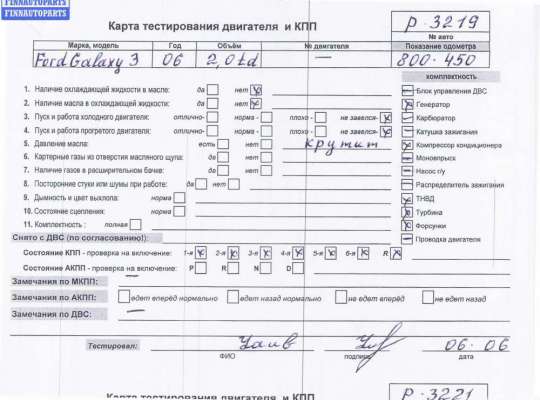 FINNAUTOPARTS
FINNAUTOPARTS
Карта тестирования двигателя и КПП
р-3219
№ авто
Марка, модель Год Объём № двигателя Показание одометра
Ford Galaxy 3 06 2,0td — 800-450
комплектность
1. Наличие охлаждающей жидкости в масле: да нет
2. Наличие масла в охлаждающей жидкости: да нет
3. Пуск и работа холодного двигателя: отлично- норма - плохо - не завелся-
4. Пуск и работа прогретого двигателя: отлично- норма - плохо - не завелся-
5. Давление масла: есть нет крутит
6. Картерные газы из отверстия масляного щупа: да нет
7. Наличие газов в расширительном бачке: да нет
8. Посторонние стуки или шумы при работе: да нет
9. Дымность и цвет выхлопа: норма
10. Состояние сцепления: норма
11. Комплектность : полная
Блок управления ДВС
Генератор
Карбюратор
Катушка зажигания
Компрессор кондиционера
Моновпрыск
Насос г/у
Распределитель зажигания
ТНВД
Турбина
Форсунки
Проводка двигателя
Снято с ДВС (по согласованию!):
Состояние КПП - проверка на включение: 1-я 2-я 3-я 4-я 5-я 6-я R
Состояние АКПП - проверка на включение: P R N D
Замечания по МКПП:
Замечания по АКПП: едет вперёд нормально едет назад нормально не едет вперёд не едет назад
Замечания по ДВС: —
Тестировал: 06.06
ФИО подпись дата
Карта тестирования двигателя и КПП
р-3221